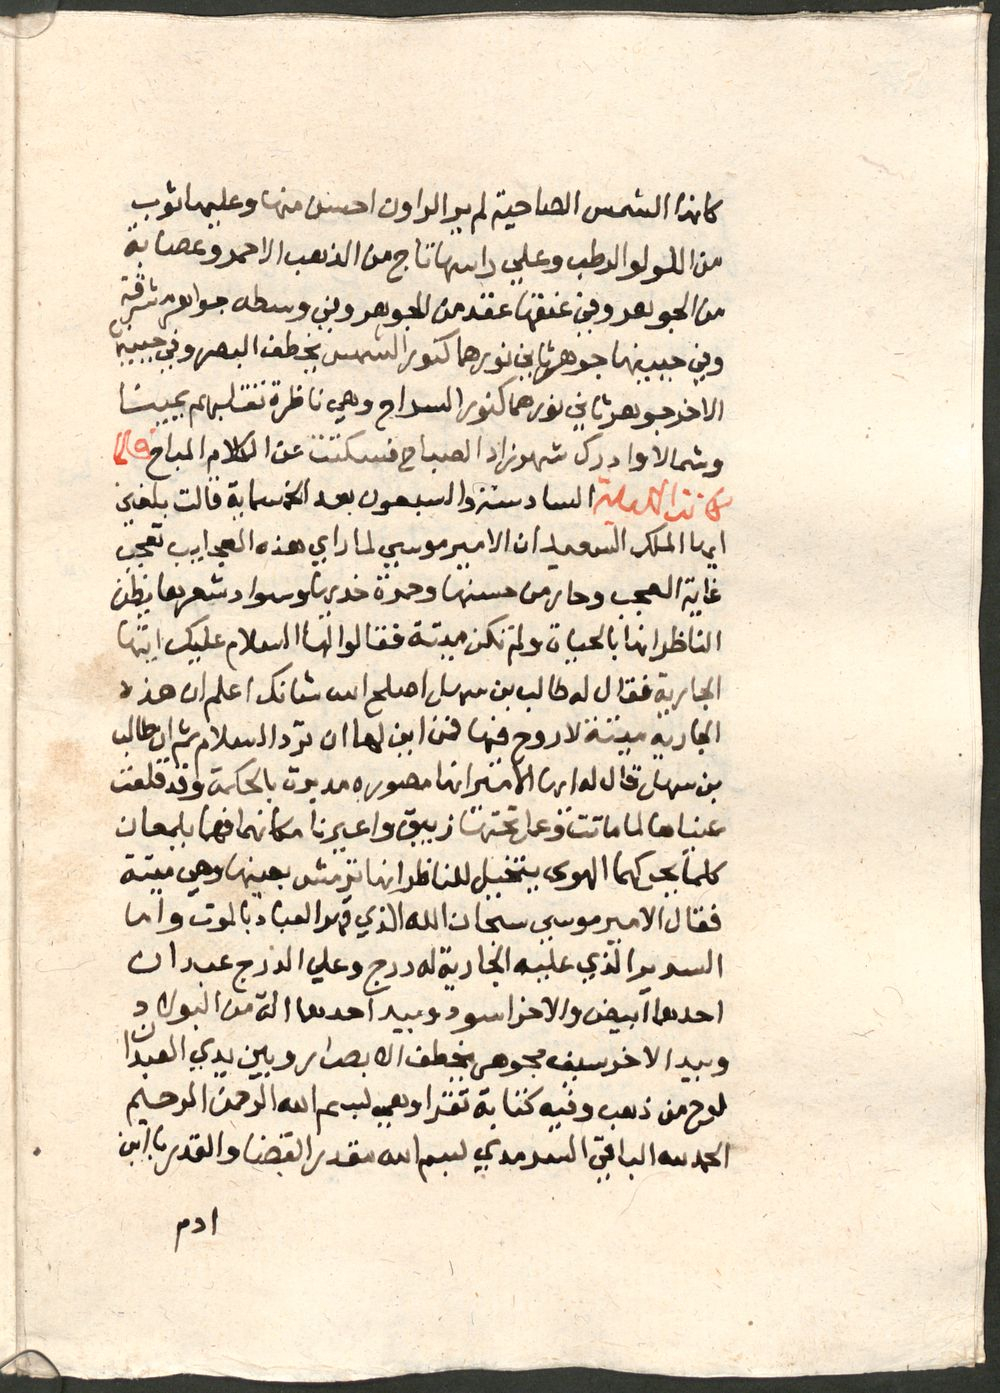 كانها الشمس الضاحية لم ير الراون احسن منها وعليها ثوب
من اللولو الرطب وعلي راسها تاج من الذهب الاحمر وعصابة
من الجوهر وفي عنقها عقد من الجوهر وفي وسطه جواهر مشرقة
وفي جبينها جوهرتاين نورهما كنور الشمس يخطف البصر وفي جبينها
الاخر جوهرتاني نورهما كنور السراج وهي ناظرة تقتلبهم يمينا
وشمالا وادرك شهرزاد الصباح فسكتت عن الكلام المباح فلما
كانت الليلة السادسة والسبعون بعد الخمسماية قالت بلغني
ايها الملك السعيد ان الامير موسي لما راي هذه العجايب تعجب
غاية العجب وحار من حسنها وحمرة خديها وسواد شعرها يظن
الناظر انها بالحياة ولم تكن ميتة فقالوا لها السلام عليك ايتها
الجارية فقال له طالب بن سهل اصلح الله شانك اعلم ان هذه
الجارية ميتة لا روح فيها فمن اين لها ان ترد السلام ثم ان طالب
بن سهل قال له ايها الامير انها مصوره مدبرة بالحكمة وقد قلعت
عيناها لما ماتت وعمل تحتها زيبق واعيدتا مكانهما فهما يلمعان
كلما يحركهما الهوى يتخيل للناظر انها ترمش بعينها وهي ميتة
فقال الامير موسي سبحان الله الذي قهر العباد بالموت واما
السرير الذي عليه الجارية له درج وعلي الدرج عبدان
احدهما ابيض والاخر اسود وبيد احدهما الة من البولاد
وبيد الاخر سيف مجوهر يخطف الابصار وبين يدي العبدان
لوح من ذهب وفيه كتابة تقرا وهي بسم الله الرحمن الرحيم
الحمد لله الباقي السرمدي بسم الله مقدر القضا والقدر يا ابن
ادم